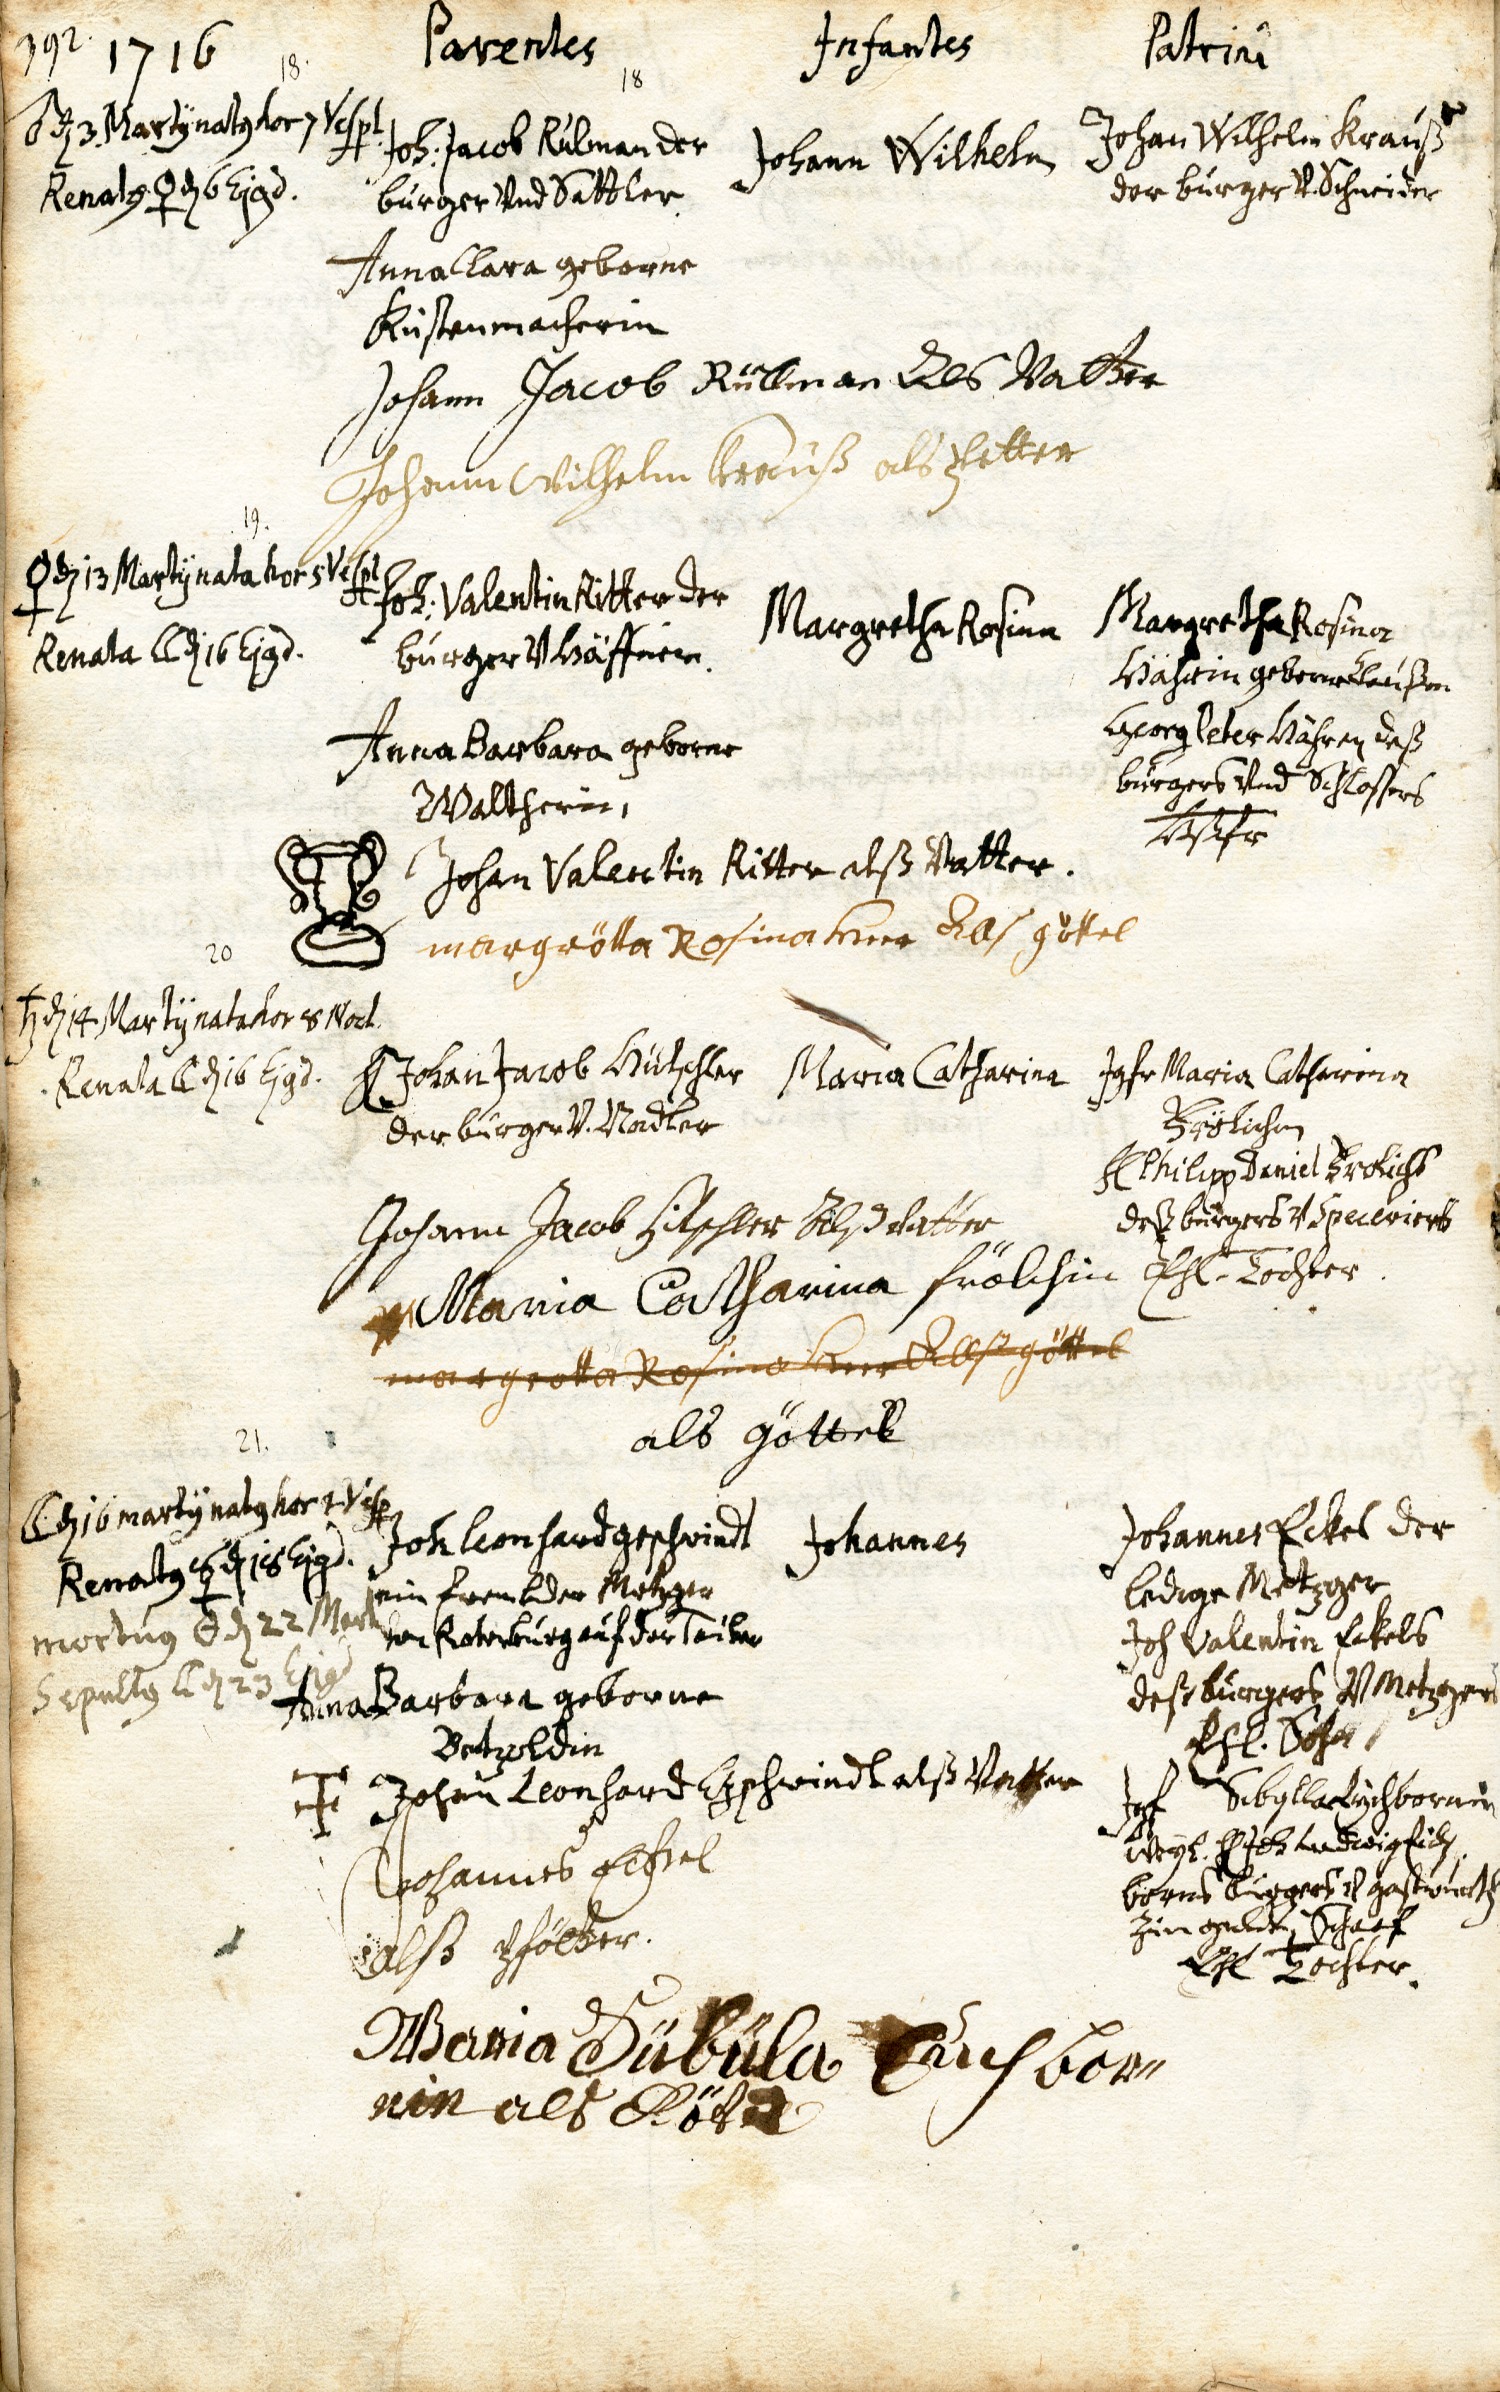 392. 1716 Parentes Infantes Patrini
18. 18
♂ d. 3. Martÿ natus hor 7 Vesp.
Renatus ♀ d. 6 Ejgd.
Joh: Jacob Rülman der
burger Vnd Sattler
Anna Clara geborne
Küstenmacherin
Johann Wilhelm
Johan Wilhelm Krauß
der burger V. Schneider
Johann Jacob Rüllman Als Vatter
Johann Wilhelm Krauß als Petter
19.
♀ d. 13 Martÿ nata hor 5 Vesp.
Renata ☾ d. 16 Ejgd.
Joh: Valentin Ritter der
burger V Häffner.
Anna Barbara geborne
Waltherin,
Margretha Rosina
Margretha Rosina
geborne
Georg Peter deß
burgers Vnd Schlossers
Johan Valentin Ritter alß Vatter.
margrötta Rosina Als göttel
20
♄ d. 14 Martÿ nata hor 8 Noct.
Renata ☾ d. 16 Ejgd.
Johan Jacob Hütschler
der burger V. Nadler
Maria Catharina
Jgfr Maria Catharina
Frölichin
H Philipp Daniel Frölichs
deß burgers V Specerierers
Ehl. Tochter.
Johann Jacob Hitschler Alß Vatter
Maria Catharina frölchin
margrotta Rosina Alß göttel
als göttel
21.
☾ d. 16 martÿ natus hor 2 Vesp.
Renatus ☿ d. 18 Ejgd.
mortus ☉ d. 22 Mart.
Sepultus ☾ d. 23 Ejgd
Joh Leonhard geschwindt
ein frembder Metzger
von Rotenburg auf der Tauber
Anna Barbara geborne
Betzoldin
Johannes
Johannes Eckel der
ledige Metzger
Joh Valentin Eckels
deß burgers V Metzgers
Ehl. Sohn
Jgf Sibylla Eychbornin
Weyl. H Joh Ludwig Eich
borns burgers V gastwürths
zum gulden Schaaf
Ehl Tochter.
Johan Leonhard Gschwindt alß Vatter
Johannes Eckel
alß Pfötter.
Maria Sübüla Euchbor=
nin als Götel